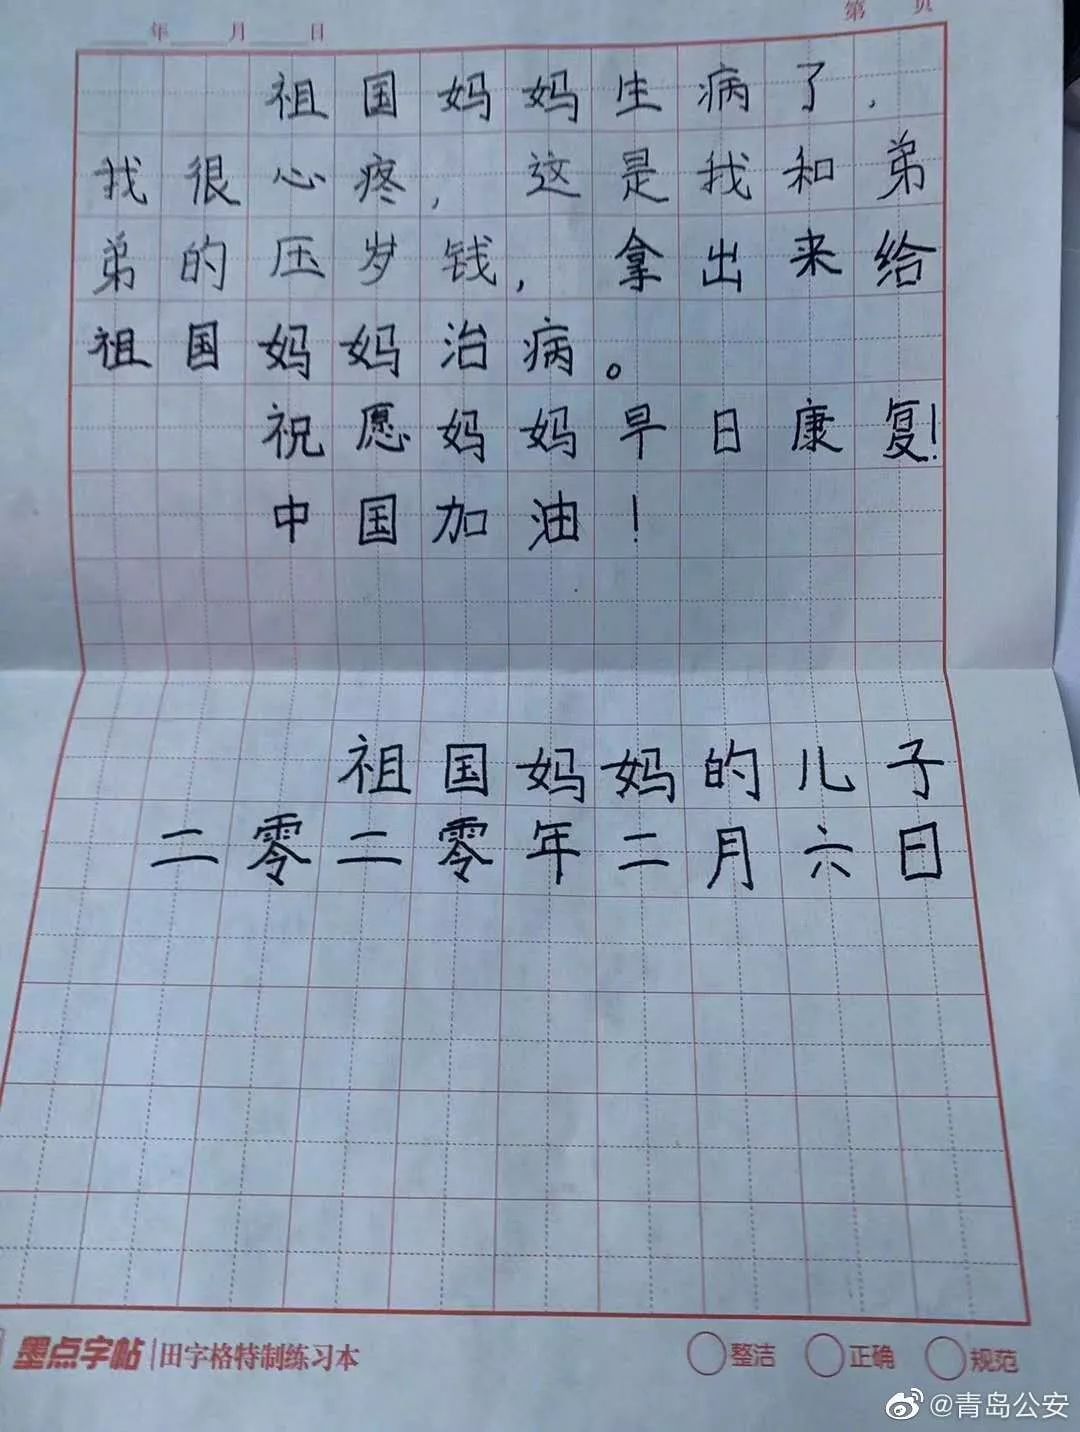 年 月 日
第 页
祖国妈妈生病了,
我很心疼,这是我和弟
弟的压岁钱,拿出来给
祖国妈妈治病。
祝愿妈妈早日康复!
中国加油!
祖国妈妈的儿子
二零二零年二月六日
墨点字帖 | 田字格特制练习本
整洁 正确 规范
@青岛公安